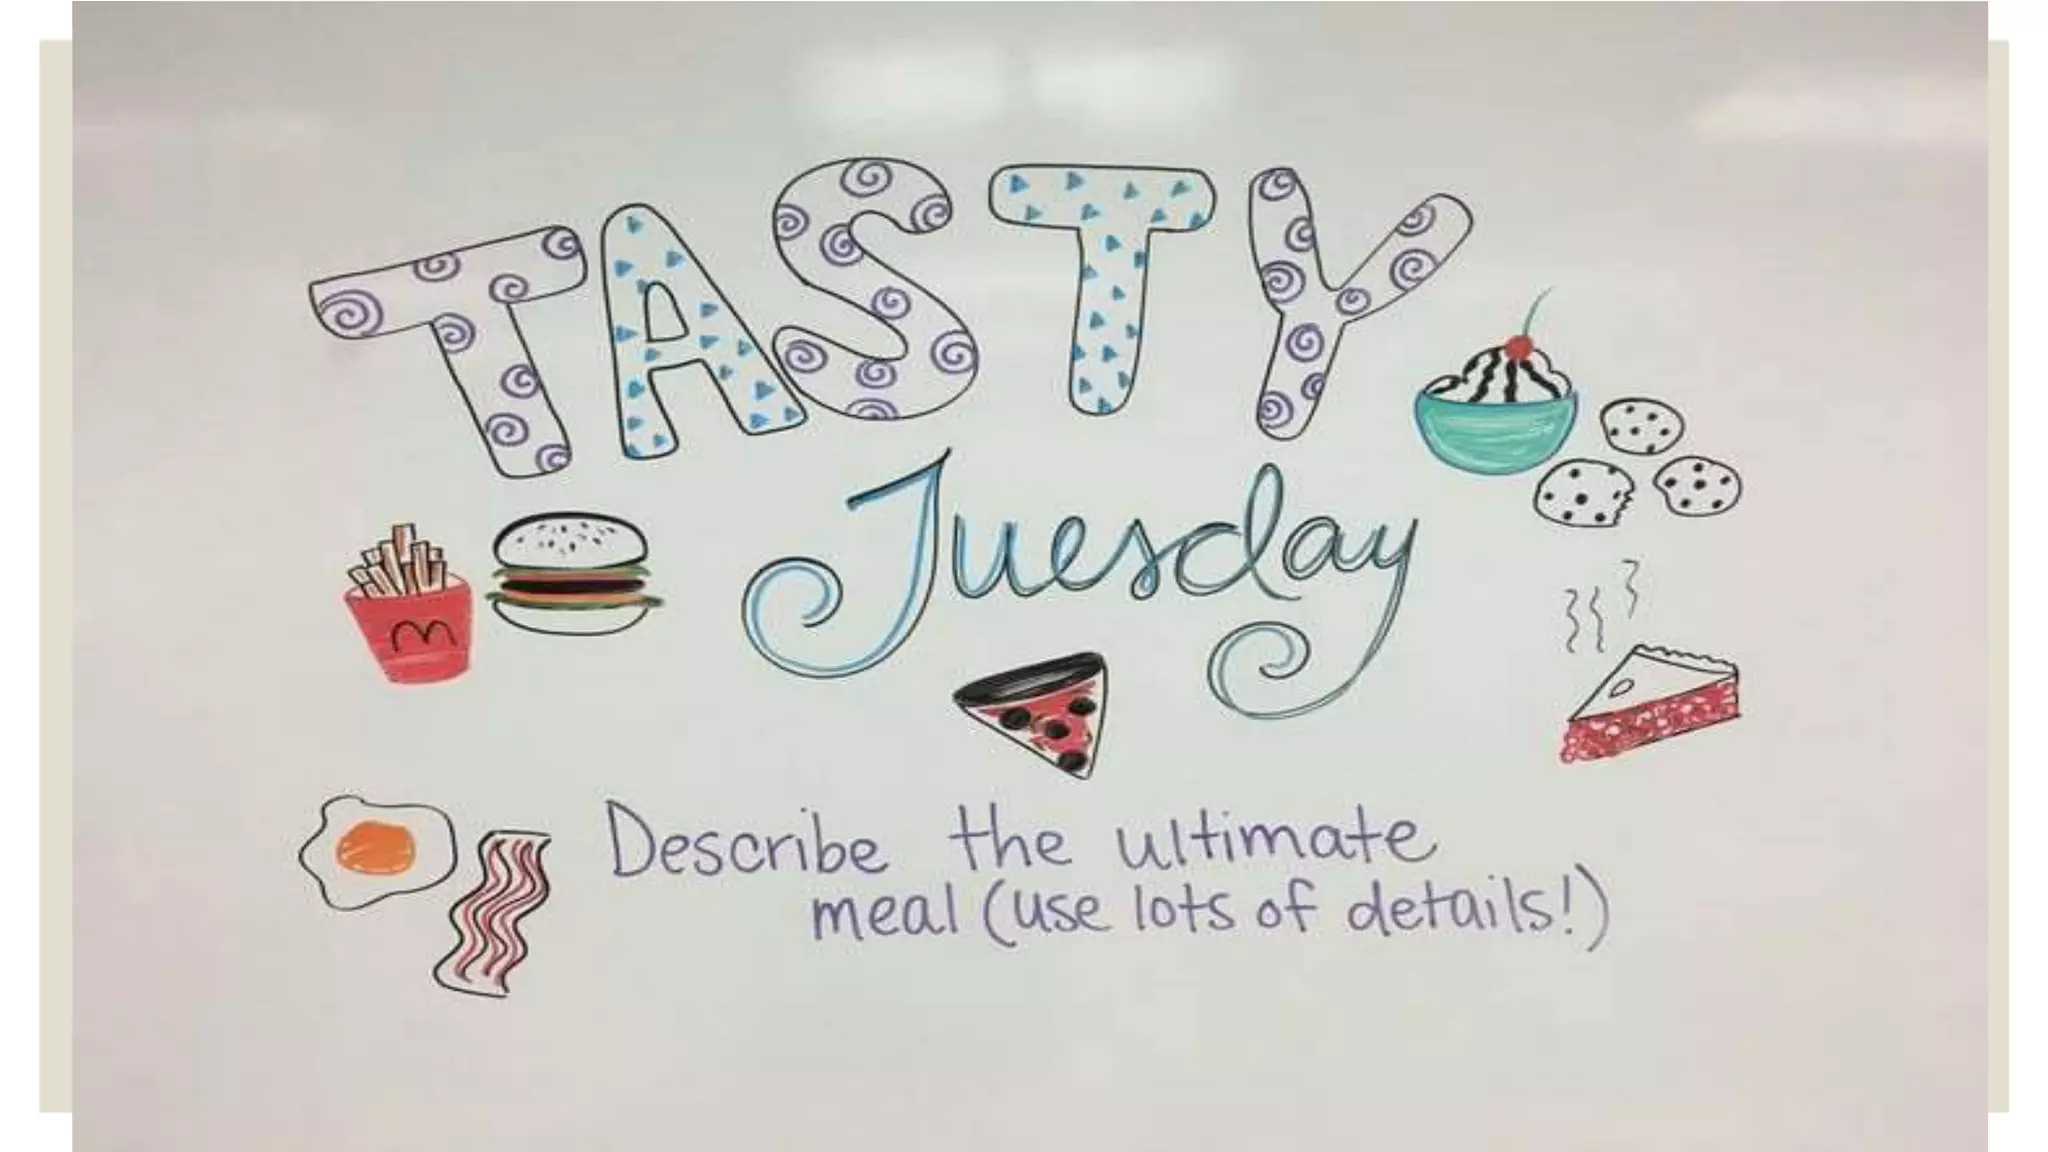 TASTY
Tuesday
M
Describe the ultimate
meal (use lots of details!)